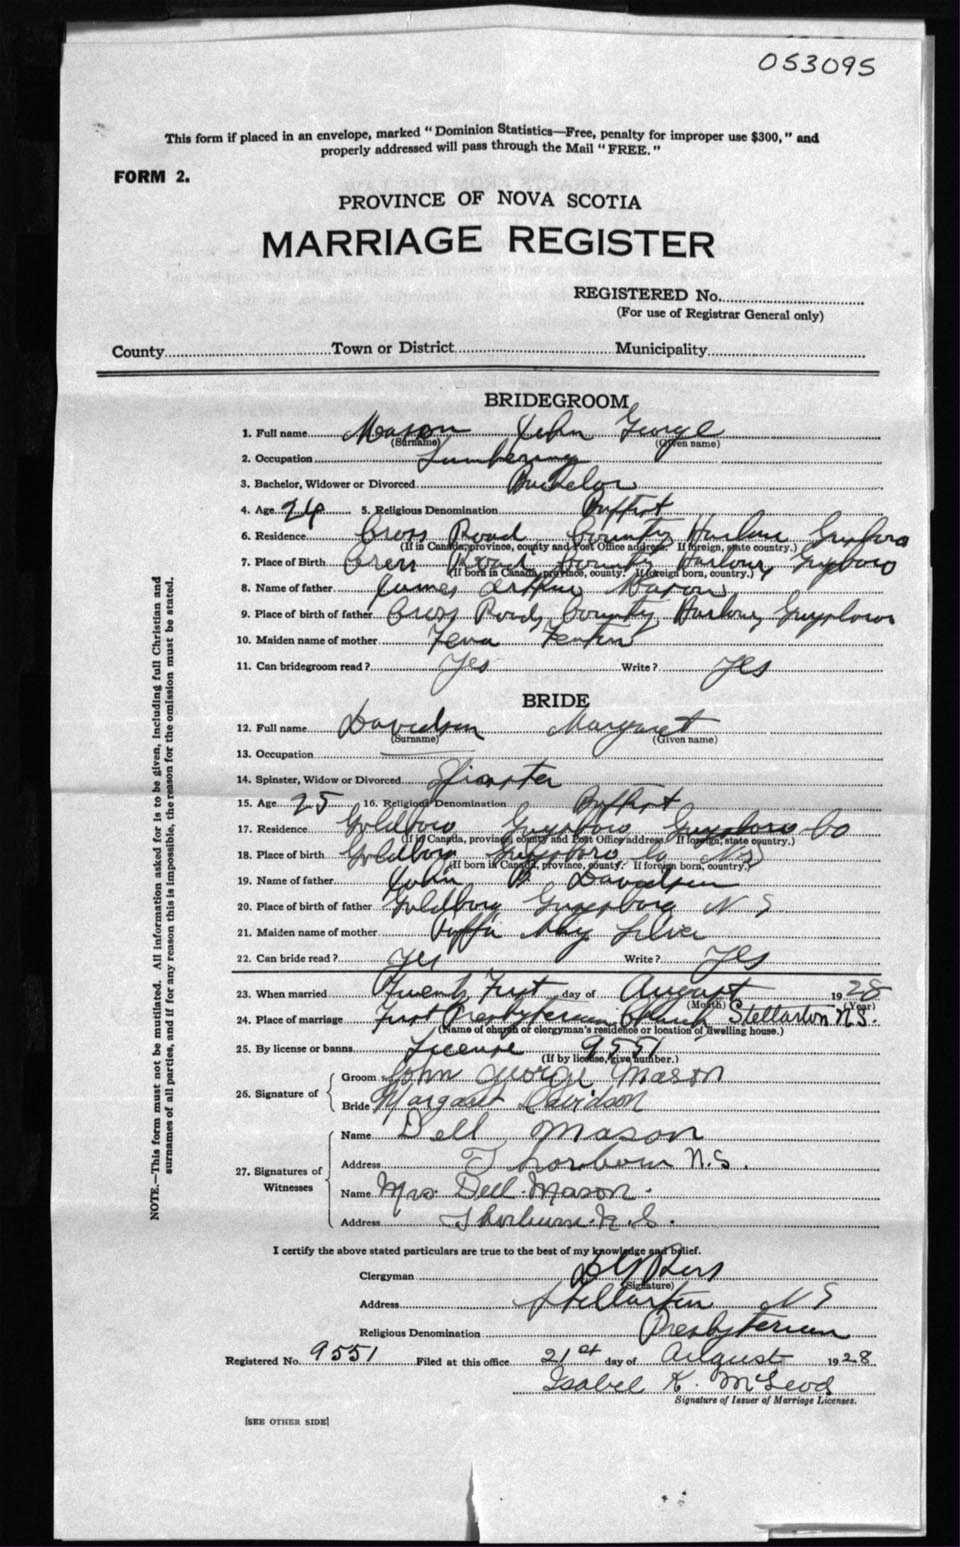 053095
This form if placed in an envelope, marked "Dominion Statistics—Free, penalty for improper use $300," and
properly addressed will pass through the Mail "FREE."
FORM 2.
PROVINCE OF NOVA SCOTIA
MARRIAGE REGISTER
REGISTERED No.
(For use of Registrar General only)
County Town or District Municipality
BRIDEGROOM
1. Full name Mason John George
(Surname) (Given name)
2. Occupation Lumbering
3. Bachelor, Widower or Divorced Bachelor
4. Age 24 5. Religious Denomination Baptist
6. Residence Cross Road Country Harbour Guysboro
(If in Canada, province, county and Post Office address. If foreign, state country.)
7. Place of Birth Cross Road Country Harbour, Guysboro
(If born in Canada, province, county. If foreign born, country.)
8. Name of father James Arthur Mason
9. Place of birth of father Cross Road, Country Harbour, Guysboro
10. Maiden name of mother
11. Can bridegroom read? Yes Write? Yes
BRIDE
12. Full name Davidson Margaret
(Surname) (Given name)
13. Occupation
14. Spinster, Widow or Divorced Spinster
15. Age 25 16. Religious Denomination Baptist
17. Residence Goldboro Guysboro Guysboro Co
(If in Canada, province, county and Post Office address. If foreign, state country.)
18. Place of birth Goldboro Guysboro Co NS
(If born in Canada, province, county. If foreign born, country.)
19. Name of father John Davidson
20. Place of birth of father Goldboro Guysboro N S
21. Maiden name of mother May
22. Can bride read? Yes Write? Yes
23. When married Twenty First day of August 1928
(Month) (Year)
24. Place of marriage First Presbyterian Church Stellarton N.S.
(Name of church or clergyman's residence or location of dwelling house.)
25. By license or banns License 9551
(If by license, give number.)
26. Signature of
Groom John George Mason
Bride Margaret Davidson
27. Signatures of Witnesses
Name Dell Mason
Address Thorburn N.S.
Name Mrs Dell Mason.
Address Thorburn. N.S.
I certify the above stated particulars are true to the best of my knowledge and belief.
Clergyman
(Signature)
Address Stellarton N S
Religious Denomination Presbyterian
Registered No. 9551 Filed at this office 21st day of August 1928
Isabel K. McLeod
Signature of Issuer of Marriage Licenses.
[SEE OTHER SIDE]
NOTE.—This form must not be mutilated. All information asked for is to be given, including full Christian and
surnames of all parties, and if for any reason this is impossible, the reason for the omission must be stated.